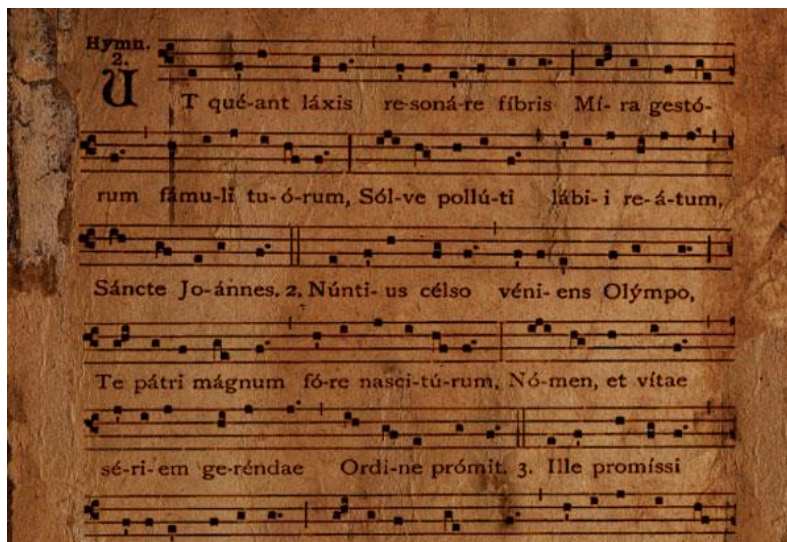 Hymn.
2.
UT qué-ant láxis re-soná-re fíbris Mí- ra gestó-
rum fámu-li tu-ó-rum, Sól-ve pollú-ti lábi- i re-á-tum,
Sáncte Jo-ánnes. 2. Núnti- us célso véni- ens Olýmpo,
Te pátri mágnum fó-re nasci-tú-rum, Nó-men, et vítae
sé-ri- em ge-réndae Ordi-ne prómit. 3. Ille promíssi